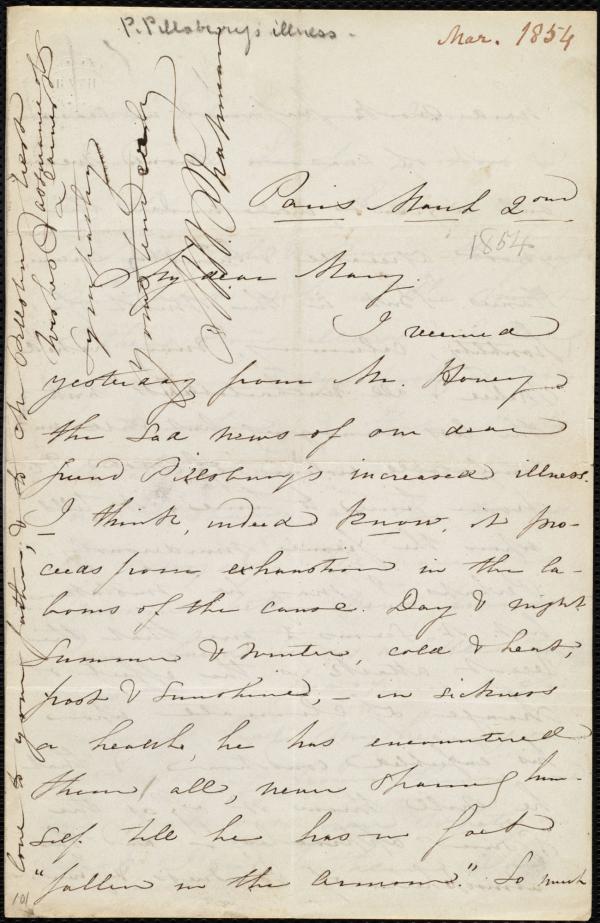 P. Pillsbury's illness.
Mar. 1854
Paris March 2ond
1854
My dear Mary.
I received
yesterday from Mr. Hovey
the sad news of our dear
friend Pillsbury's increased illness.
I think, indeed know, it pro-
ceeds from exhaustion in the la-
bours of the cause. Day & night
Summer & Winter, cold & heat,
frost & sunshine, - in sickness
or health, he has encountered
them all, never sparing him-
self till he has in fact
"fallen in the armour." So much
love to your father, & to Mr Pillsbury best
wishes & assurance of
sympathy
Yours tenderly
M. W. Chapman
101